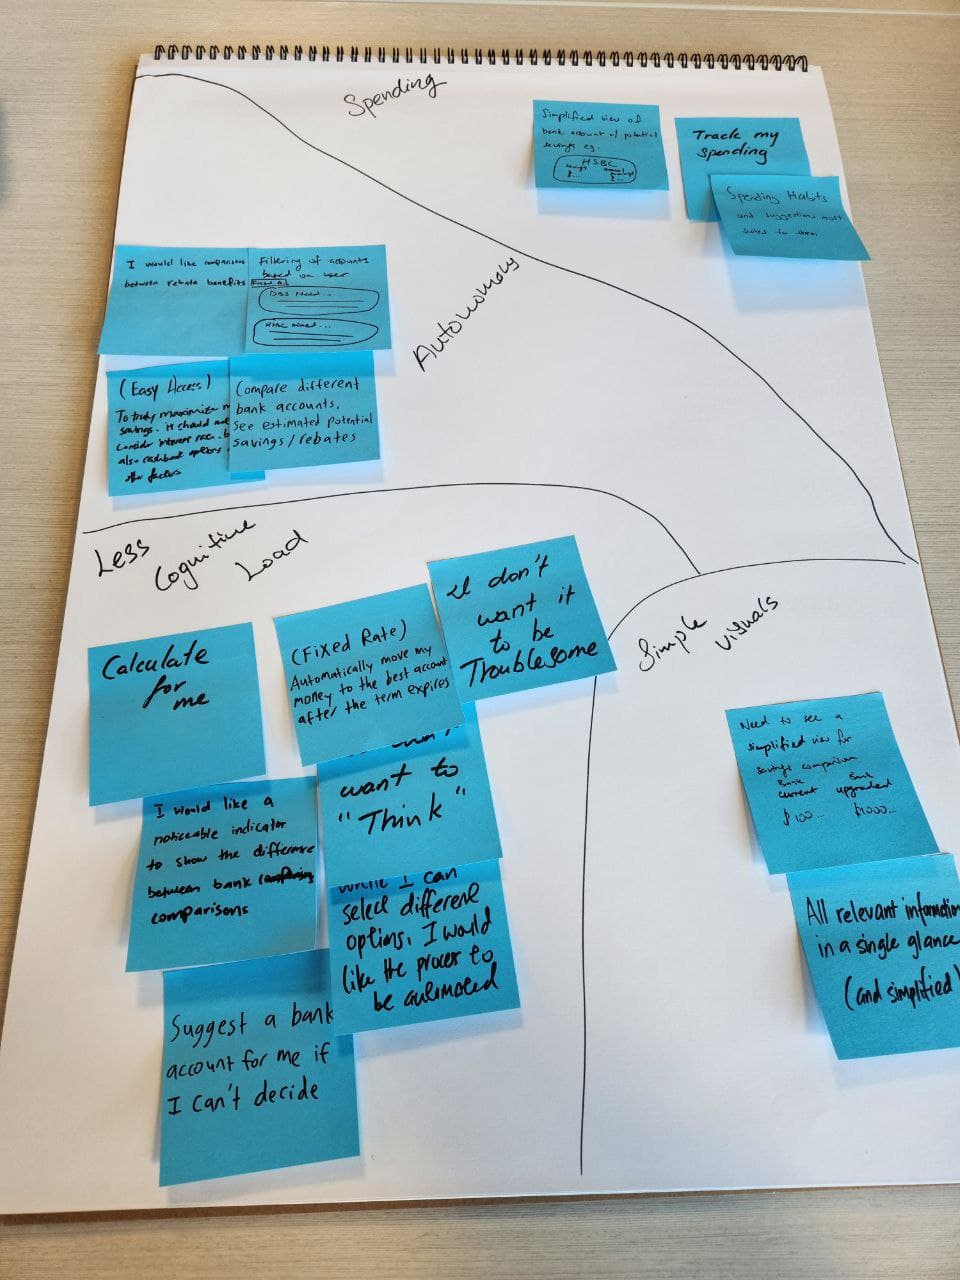 Spending
Simplified view of
bank account w/ potential
savings eg.
HSBC
Track my
spending
Spending Habits
and suggestions most
suited to them
I would like comparisons
between rebate benefits
Filtering of accounts
based on user
Autonomony
(Easy Access)
To truly maximize
savings. it should
consider interest
also cashback options
other factors
Compare different
bank accounts.
See estimated potential
savings/rebates
Less
Cognitive
Load
Calculate
for
me
(Fixed Rate)
Automatically move my
money to the best account
after the term expires
I don't
want it
to be
Troublesome
Simple
visuals
I would like a
noticeable indicator
to show the difference
between bank
comparisons
want to
"Think"
While I can
select different
options, I would
like the process to
be automated
Suggest a bank
account for me if
I can't decide
Need to see a
simplified view for
savings comparison
Bank Bank
current upgraded
$100... $1000...
All relevant information
in a single glance
(and simplified)